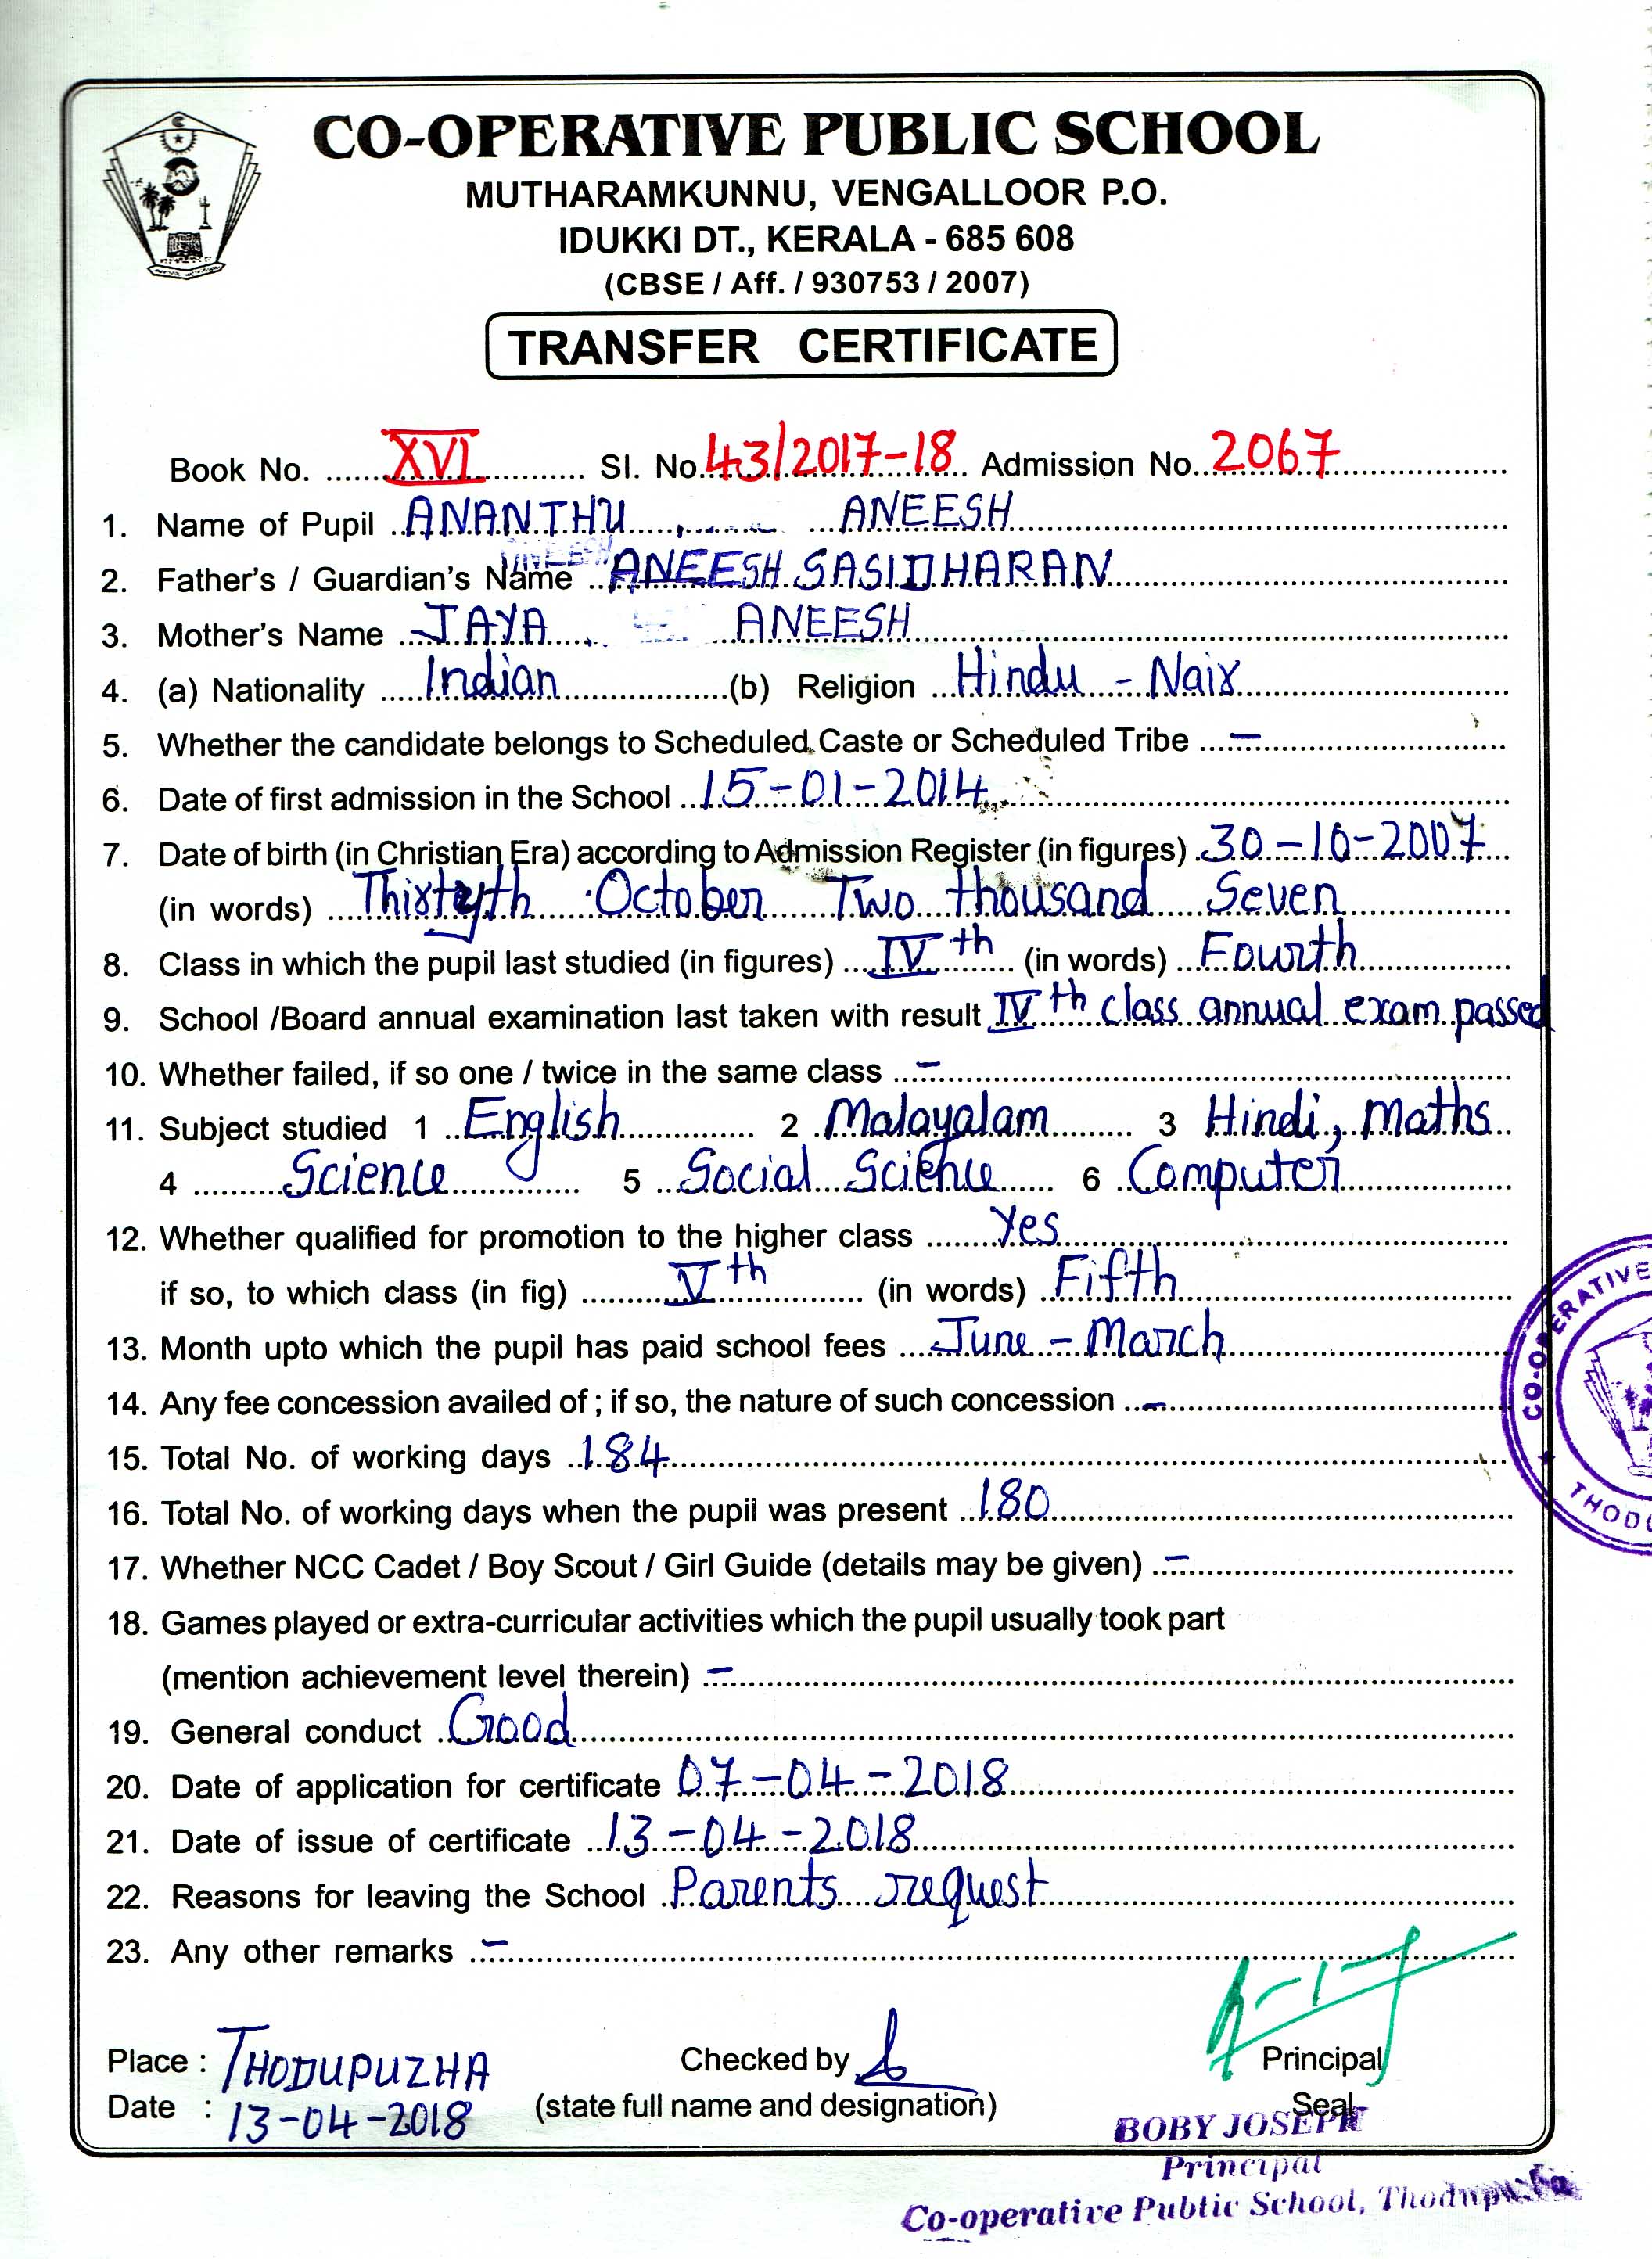 CO-OPERATIVE PUBLIC SCHOOL
MUTHARAMKUNNU, VENGALLOOR P.O.
IDUKKI DT., KERALA - 685 608
(CBSE / Aff. / 930753 / 2007)
TRANSFER CERTIFICATE
Book No. XVI Sl. No. 43/2017-18 Admission No. 2067
1. Name of Pupil ANANTHU ANEESH
2. Father's / Guardian's Name ANEESH SASIDHARAN
3. Mother's Name JAYA ANEESH
4. (a) Nationality Indian (b) Religion Hindu - Nair
5. Whether the candidate belongs to Scheduled Caste or Scheduled Tribe -
6. Date of first admission in the School 15-01-2014
7. Date of birth (in Christian Era) according to Admission Register (in figures) 30-10-2007
(in words) October Two thousand Seven
8. Class in which the pupil last studied (in figures) IVth (in words) Fourth
9. School /Board annual examination last taken with result IVth class annual exam passed
10. Whether failed, if so one / twice in the same class -
11. Subject studied 1 English 2 Malayalam 3 Hindi, Maths
4 Science 5 Social Science 6 Computer
12. Whether qualified for promotion to the higher class Yes
if so, to which class (in fig) Vth (in words) Fifth
13. Month upto which the pupil has paid school fees June - March
14. Any fee concession availed of ; if so, the nature of such concession -
15. Total No. of working days 184
16. Total No. of working days when the pupil was present 180
17. Whether NCC Cadet / Boy Scout / Girl Guide (details may be given) -
18. Games played or extra-curricular activities which the pupil usually took part
(mention achievement level therein) -
19. General conduct Good
20. Date of application for certificate 07-04-2018
21. Date of issue of certificate 13-04-2018
22. Reasons for leaving the School Parents request
23. Any other remarks -
Place : THODUPUZHA Checked by Principal
Date : 13-04-2018 (state full name and designation) Seal
BOBY JOSEPH
Principal
Co-operative Public School,